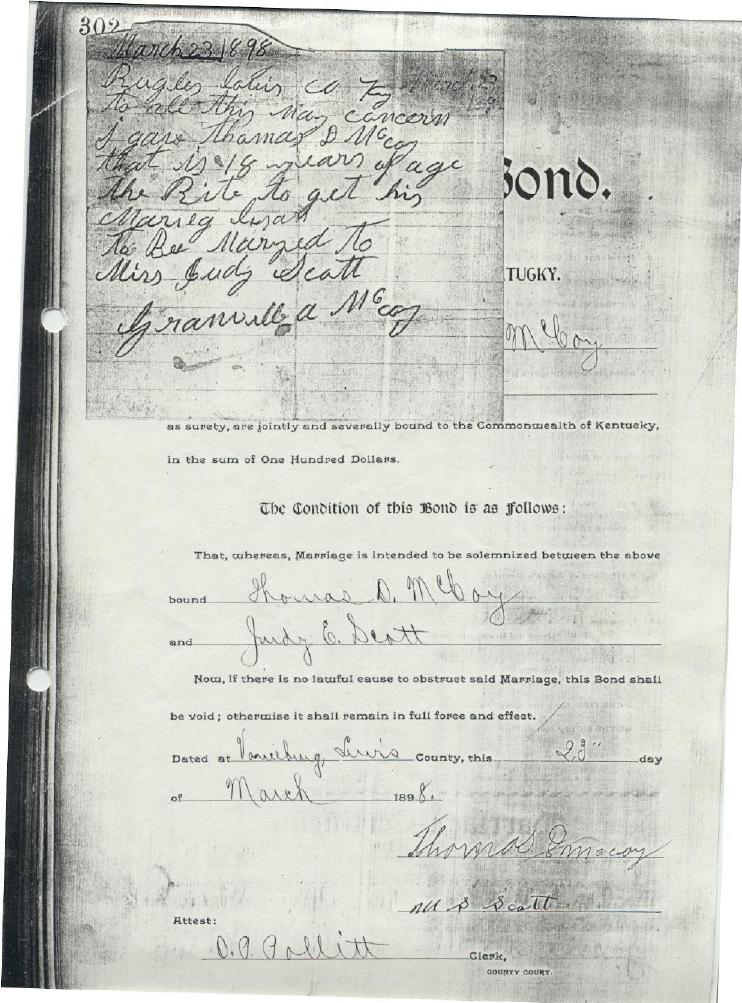 302
March 23 1898
Rugles Louis Co Ky
to all this may concern
I gave Thomas D McCoy
that is 18 years of age
the Rite to get his
Marieg
to Bee Maryed to
Miss Judy Scott
Granvill a McCoy
Bond.
TUCKY.
McCoy
as surety, are jointly and severally bound to the Commonwealth of Kentucky,
in the sum of One Hundred Dollars.
The Condition of this Bond is as Follows:
That, whereas, Marriage is intended to be solemnized between the above
bound Thomas D. McCoy
and Judy E. Scott
Now, if there is no lawful cause to obstruct said Marriage, this Bond shall
be void; otherwise it shall remain in full force and effect.
Dated at Vanceburg, Lewis County, this 23" day
of March 1898.
Thomas D McCoy
M S Scott
Attest:
O.P. Pollitt Clerk,
COUNTY COURT.